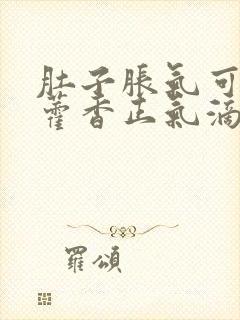 肚子胀氣可
藿香正氣滴
羅頌